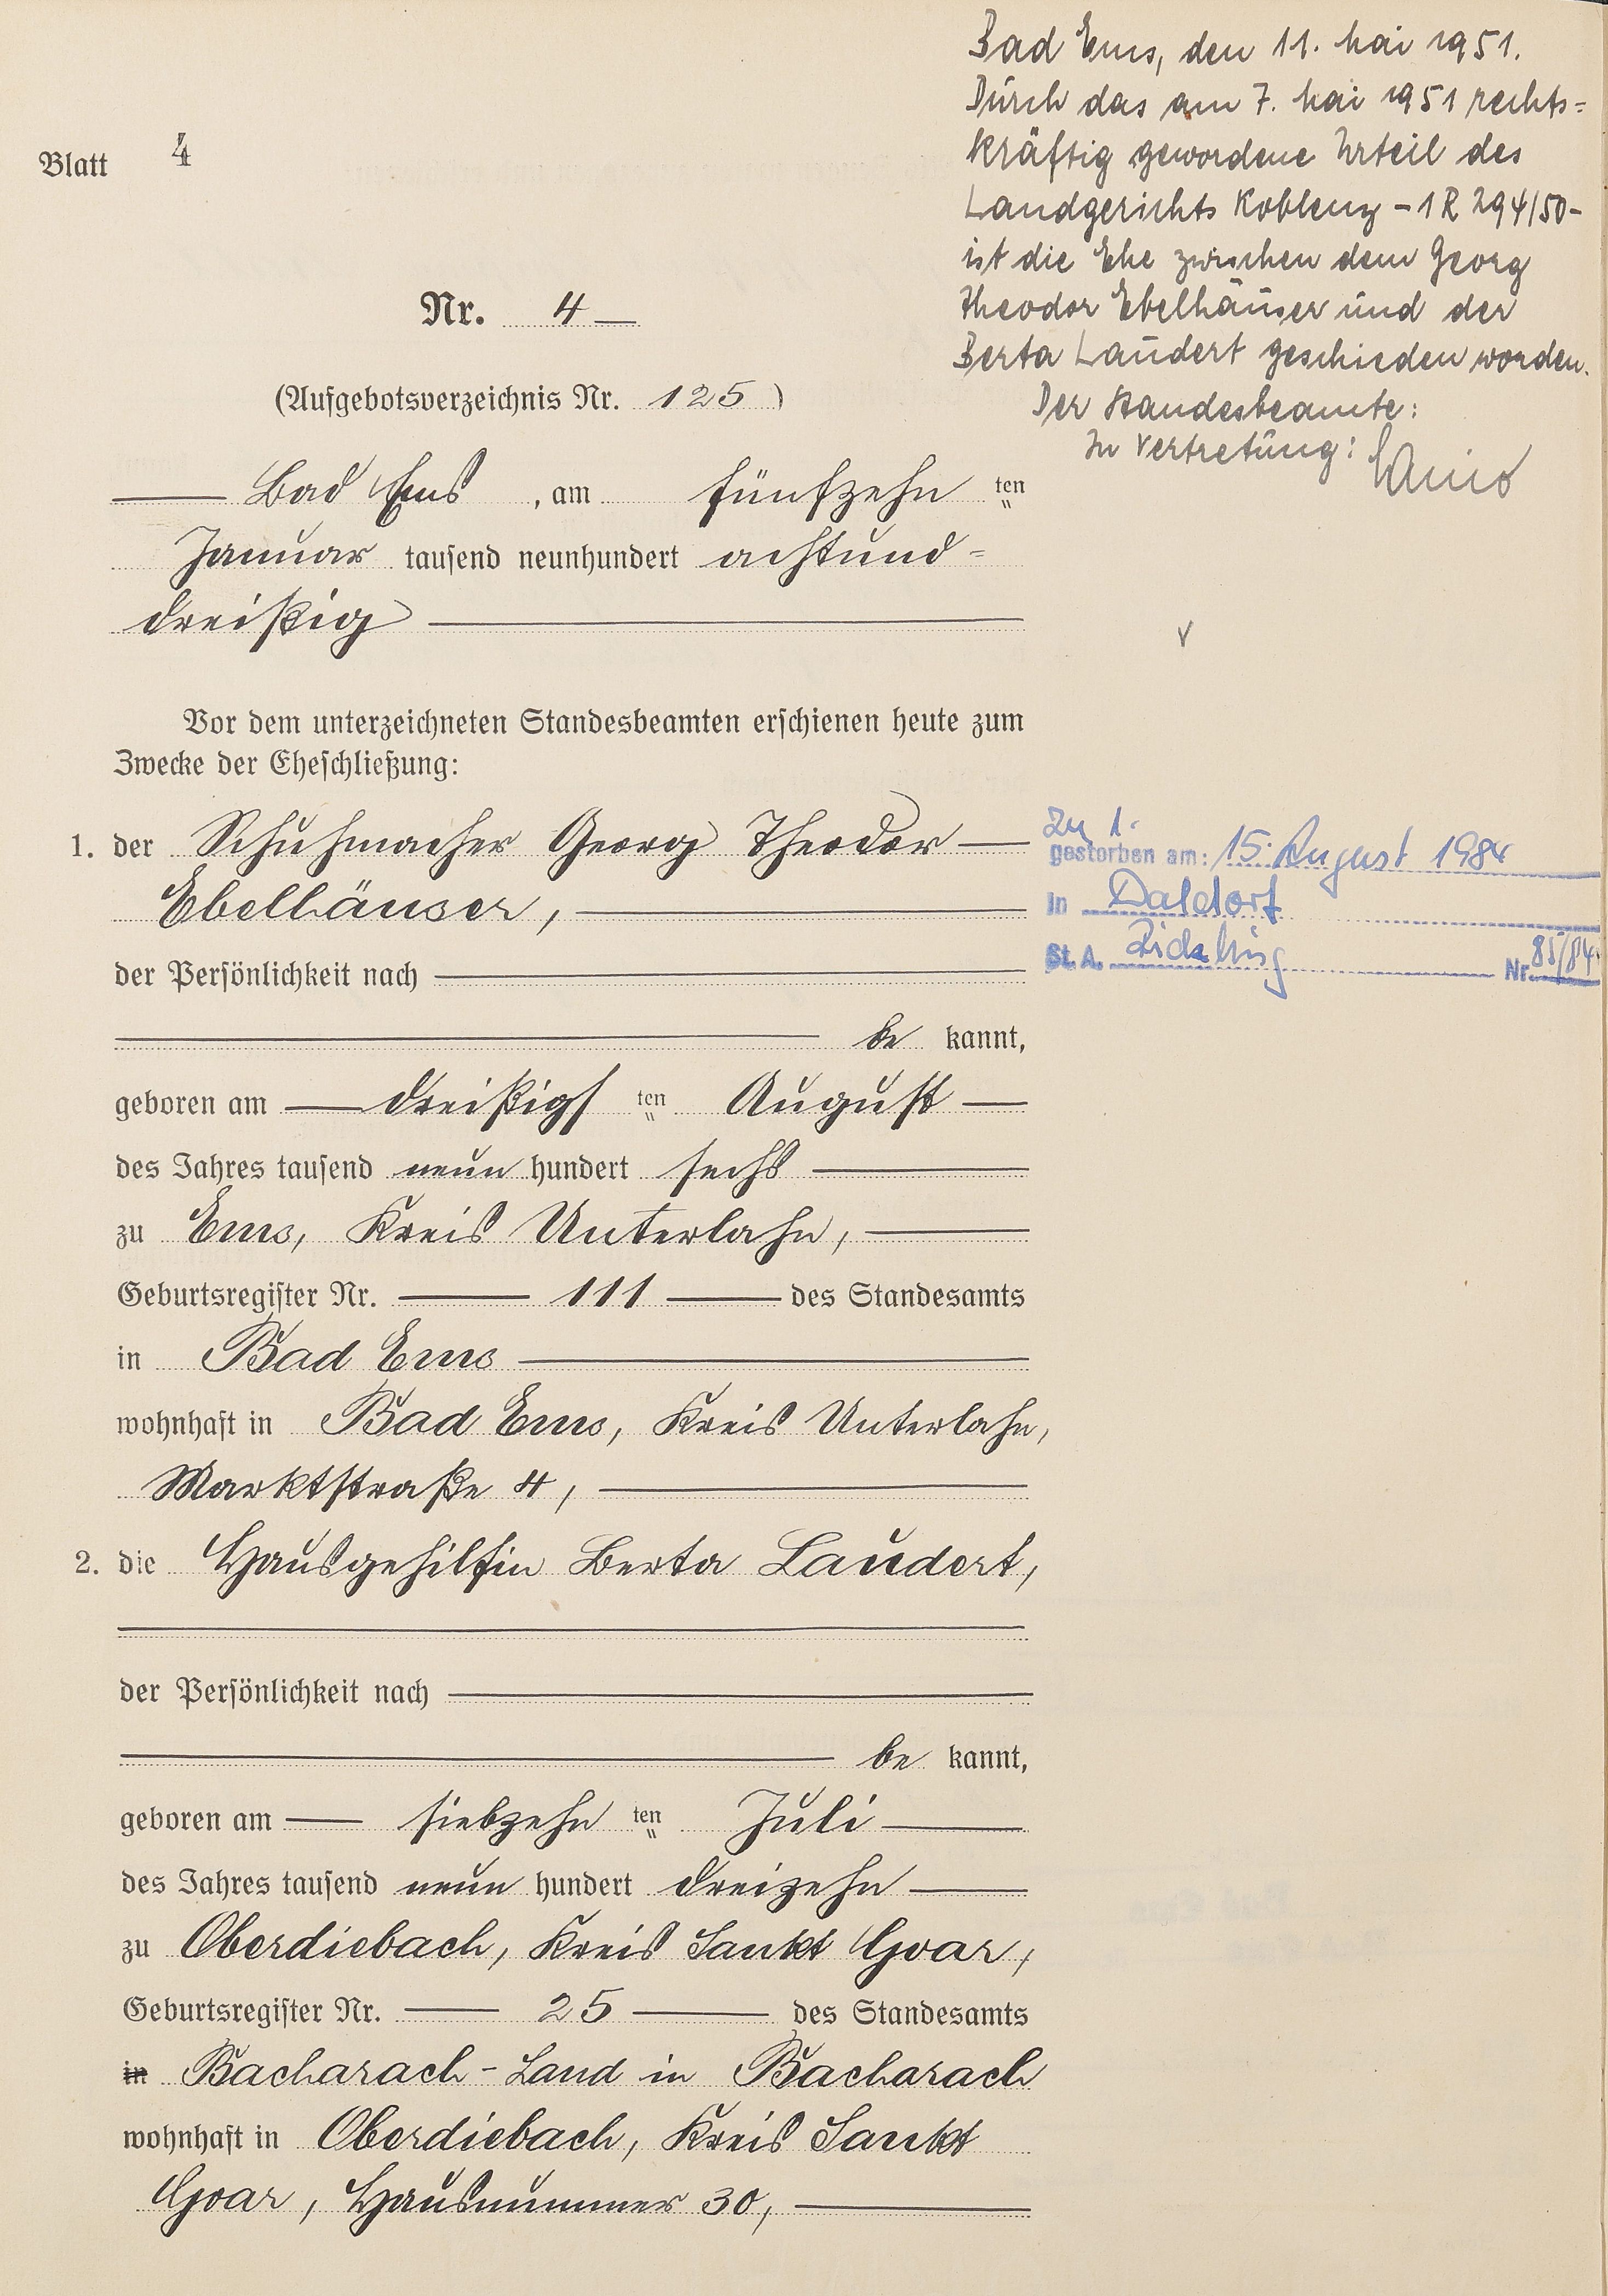 Blatt 4
Nr. 4
(Aufgebotsverzeichnis Nr. 125)
Bad Ems, am fünfzehn ten
Januar tausend neunhundert achtund=
dreißig
Bad Ems, den 11. Mai 1951.
Durch das am 7. Mai 1951 rechts=
kräftig gewordene Urteil des
Landgerichts Koblenz – 1 R 294/50 –
ist die Ehe zwischen dem Georg
Theodor Ebelhäuser und der
Berta Laudert geschieden worden.
Der Standesbeamte:
In Vertretung:
Vor dem unterzeichneten Standesbeamten erschienen heute zum
Zwecke der Eheschließung:
1. der Schuhmacher Georg Theodor
Ebelhäuser,
der Persönlichkeit nach
be kannt,
geboren am dreißigs ten August
des Jahres tausend neun hundert sechs
zu Ems, Kreis Unterlahn,
Geburtsregister Nr. 111 des Standesamts
in Bad Ems
wohnhaft in Bad Ems, Kreis Unterlahn,
Marktstraße 4,
Zu 1.
gestorben am: 15. August 1984
in Daldorf
St. A. Nr. 85/84
2. die Hausgehilfin Berta Laudert,
der Persönlichkeit nach
be kannt,
geboren am siebzehn ten Juli
des Jahres tausend neun hundert dreizehn
zu Oberdiebach, Kreis Sankt Goar,
Geburtsregister Nr. 25 des Standesamts
in Bacharach-Land in Bacharach
wohnhaft in Oberdiebach, Kreis Sankt
Goar, Hausnummer 30,